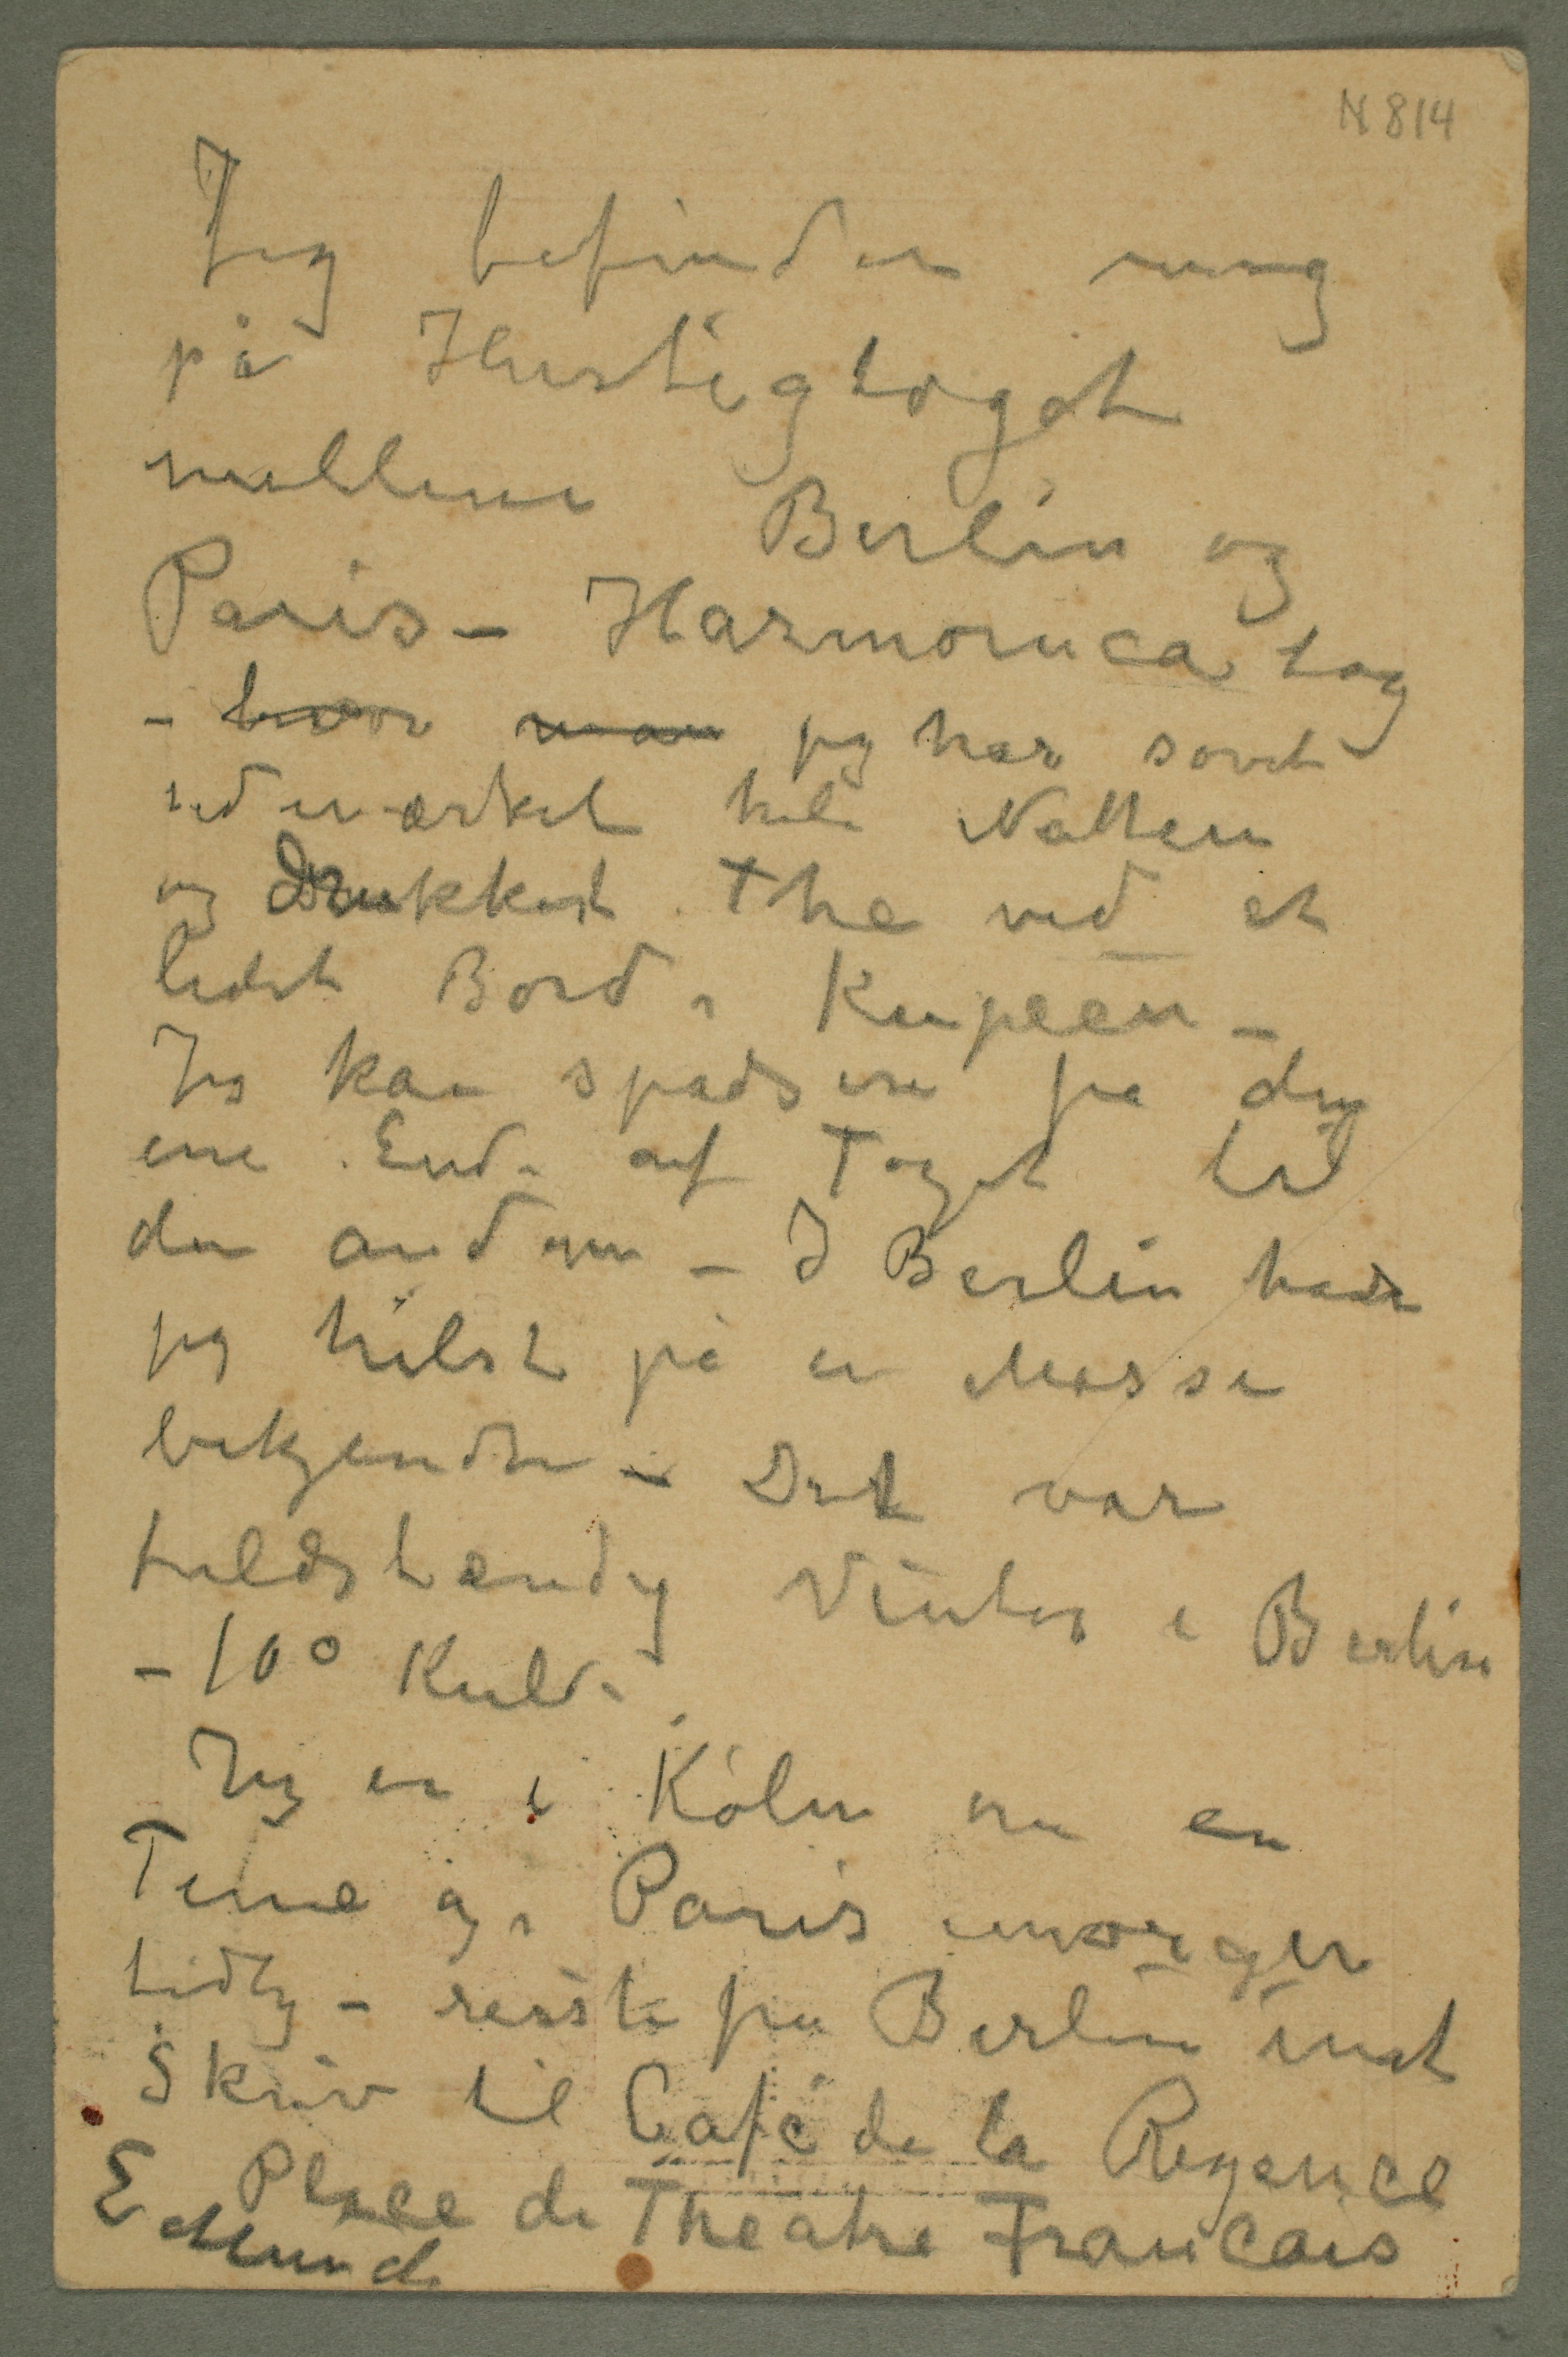 N 814
Jeg befinder mig
på Hurtigtoget
mellem Berlin og
Paris – Harmonica tog
– hvor man jeg har sovet
udmærket hele Natten
og drukket The ved et
lidet Bord i Kupeen –
Jeg kan spadsere fra den
ene Ende af Toget til
den anden – I Berlin hade
jeg hilst på en Masse
bekjendte – Det var
fuldstændig Vinter i Berlin
– 10° Kulde
Jeg er i Köln om en
Time og i Paris imorgen
tidlig – reiste fra Berlin inat
Skriv til Café de la Regence
Place de Theatre Francais
E Munch